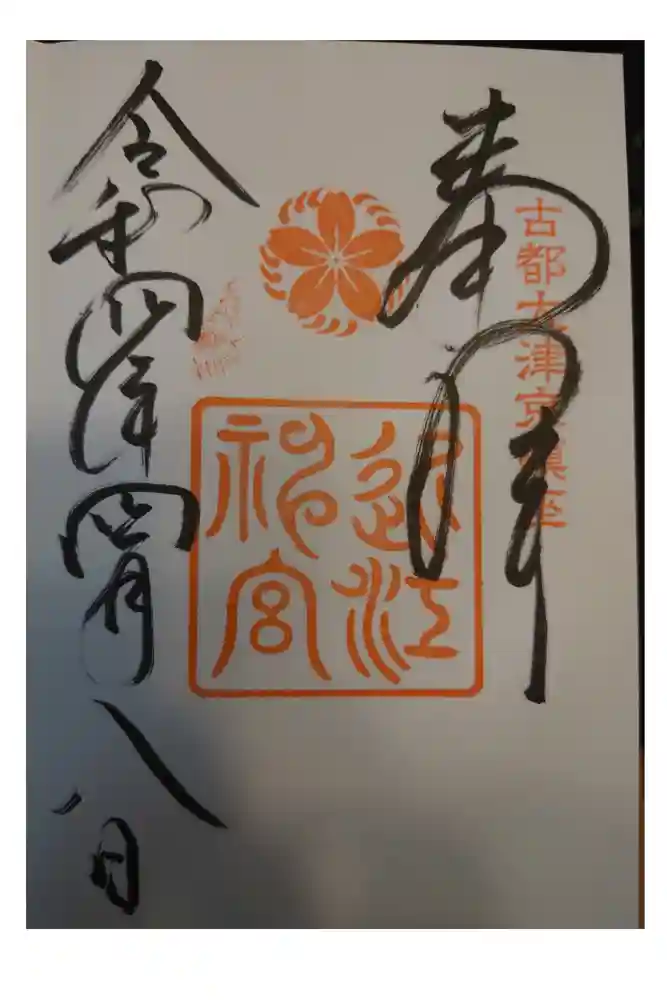 奉拝
古都大津京鎮座
近江
神宮
令和四年四月八日